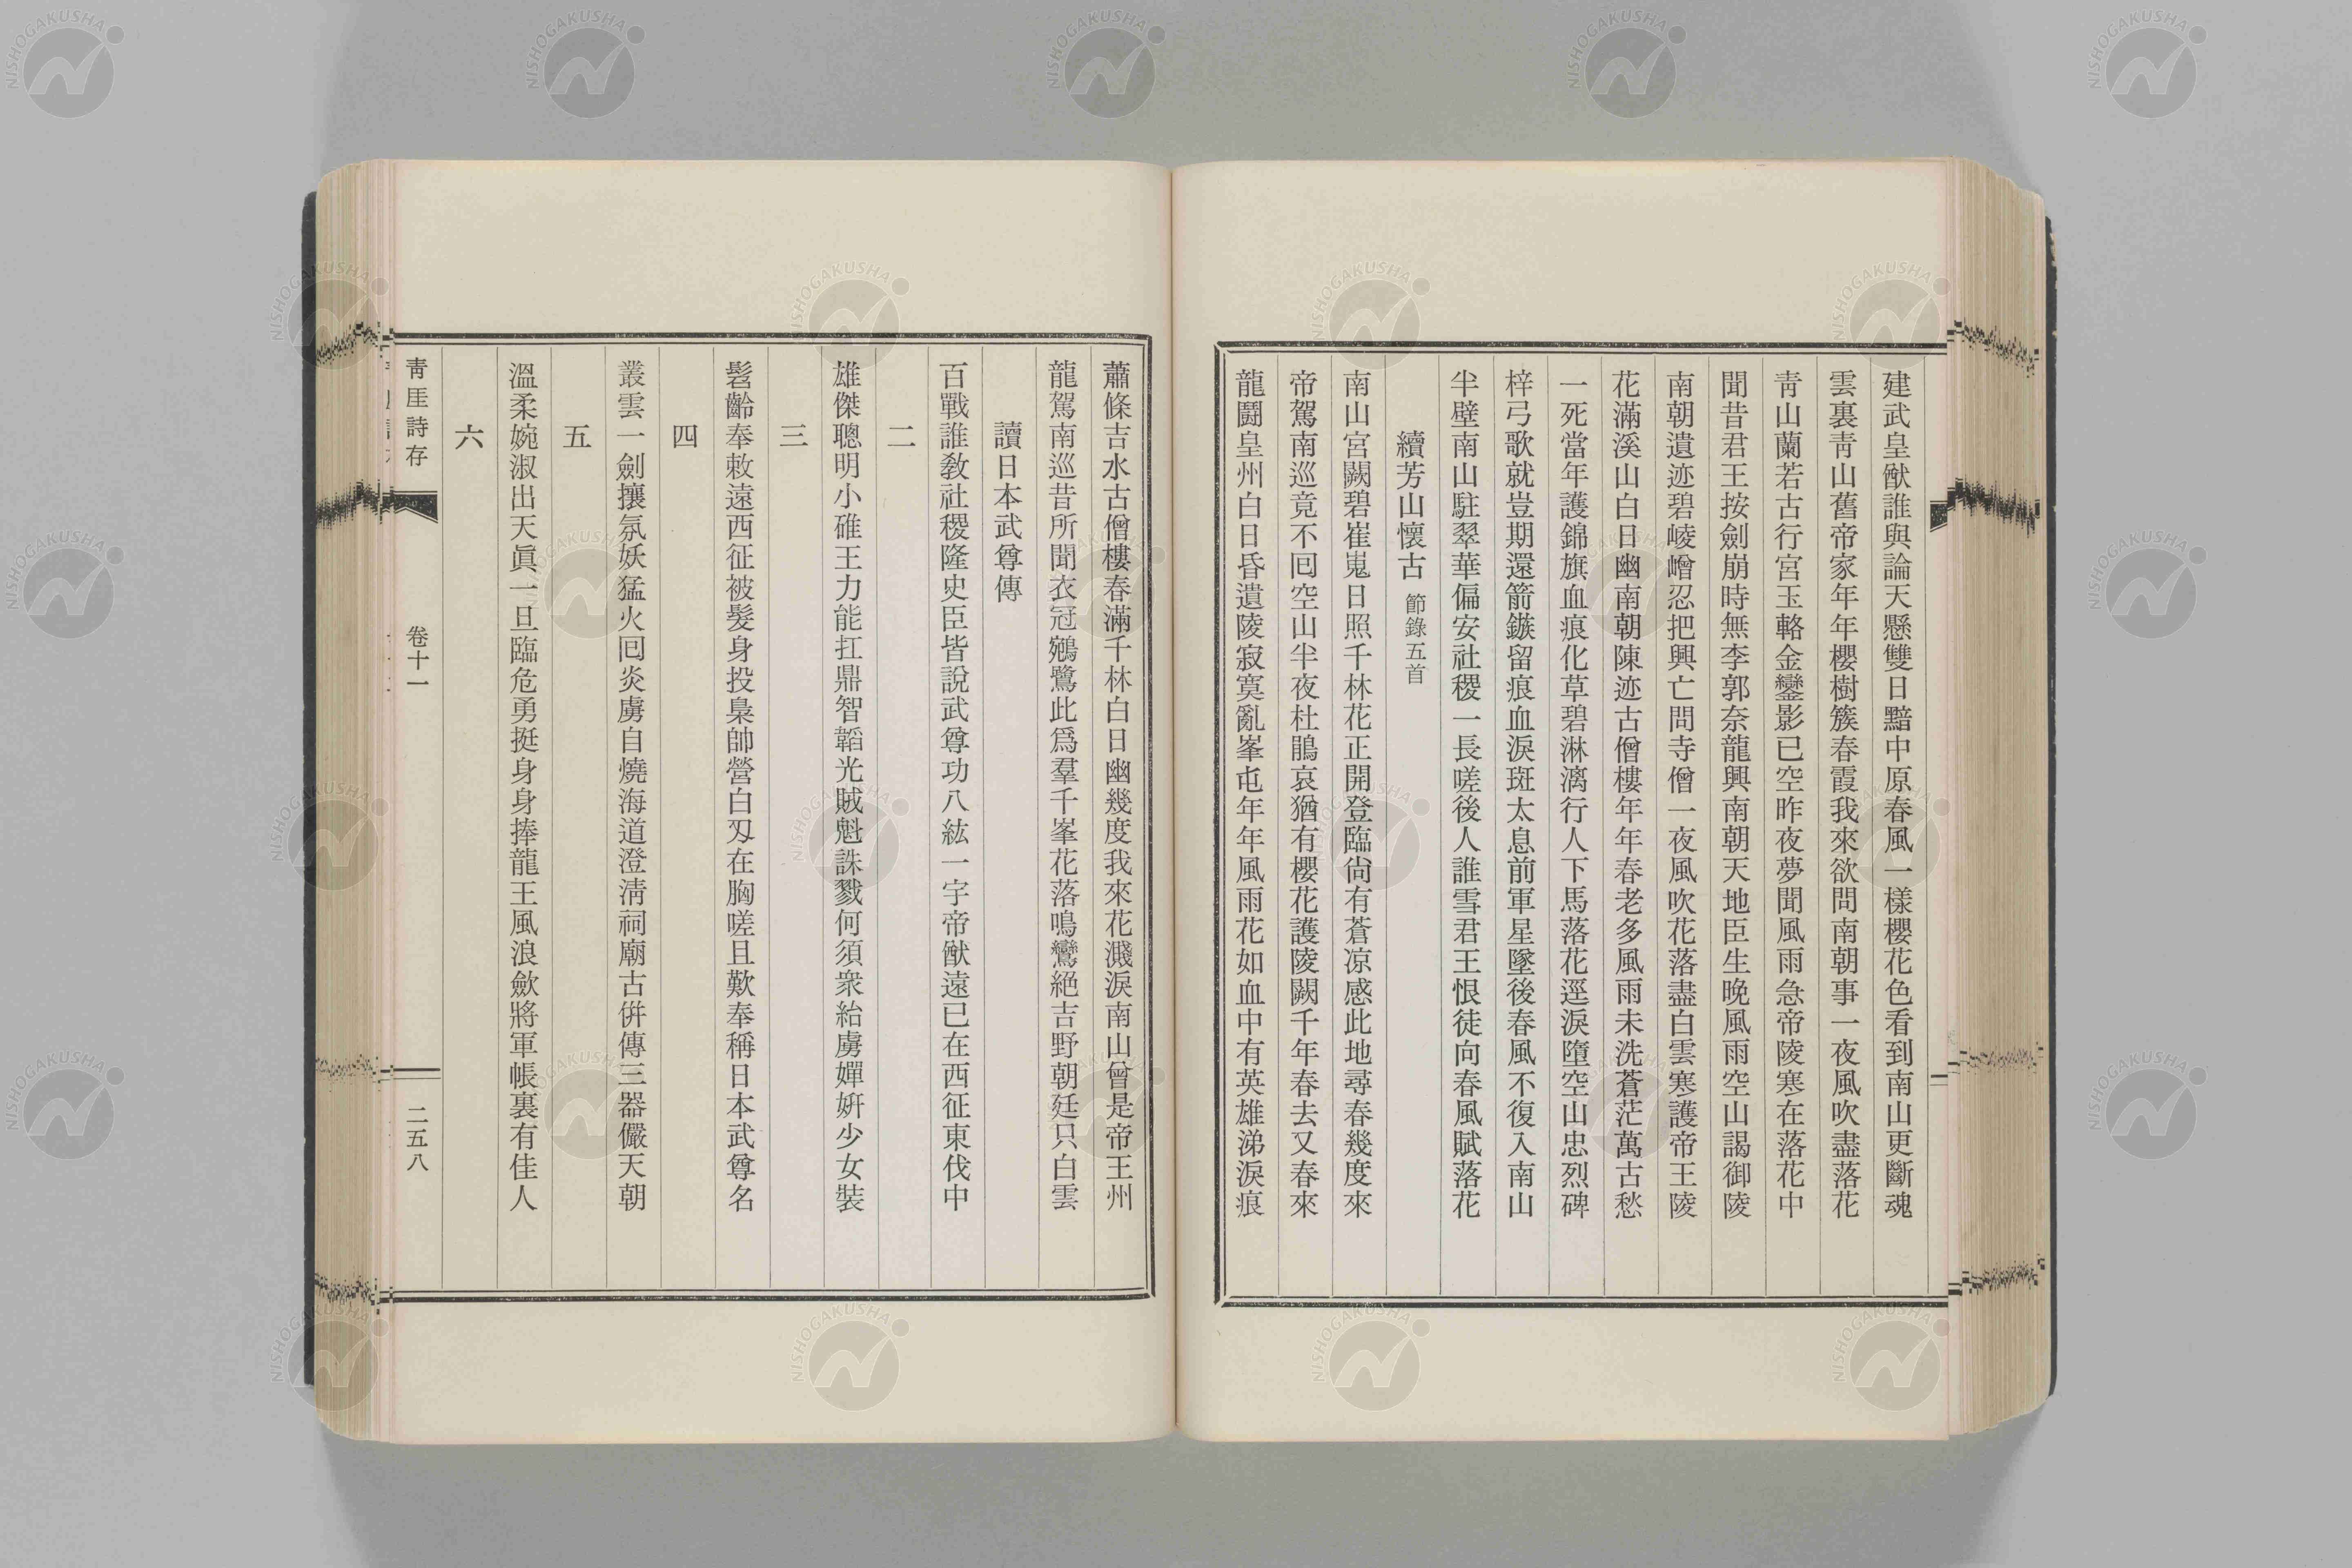 建武皇猷誰與論天懸雙日黯中原春風一樣櫻花色看到南山更斷魂
雲裏靑山舊帝家年年櫻樹簇春霞我來欲問南朝事一夜風吹盡落花
靑山蘭若古行宮玉輅金鑾影已空昨夜夢聞風雨急帝陵寒在落花中
聞昔君王按劍崩時無李郭奈龍興南朝天地臣生晚風雨空山謁御陵
南朝遺迹碧崚嶒忍把興亡問寺僧一夜風吹花落盡白雲寒護帝王陵
花滿溪山白日幽南朝陳迹古僧樓年年春老多風雨未洗蒼茫萬古愁
一死當年護錦旗血痕化草碧淋漓行人下馬落花逕淚墮空山忠烈碑
梓弓歌就豈期還箭鏃留痕血淚斑太息前軍星墜後春風不復入南山
半壁南山駐翠華偏安社稷一長嗟後人誰雪君王恨徒向春風賦落花
續芳山懷古 節錄五首
南山宮闕碧崔嵬日照千林花正開登臨尙有蒼凉感此地尋春幾度來
帝駕南巡竟不囘空山半夜杜鵑哀猶有櫻花護陵闕千年春去又春來
龍鬪皇州白日昏遺陵寂寞亂峯屯年年風雨花如血中有英雄涕淚痕
蕭條吉水古僧樓春滿千林白日幽幾度我來花濺淚南山曾是帝王州
龍駕南巡昔所聞衣冠鵷鷺此爲羣千峯花落鳴鸞絕吉野朝廷只白雲
讀日本武尊傳
百戰誰敎社稷隆史臣皆說武尊功八紘一宇帝猷遠已在西征東伐中
二
雄傑聰明小碓王力能扛鼎智韜光賊魁誅戮何須衆紿虜嬋姸少女裝
三
髫齡奉敕遠西征被髮身投梟帥營白刄在胸嗟且歎奉稱日本武尊名
四
叢雲一劍攘氛妖猛火囘炎虜自燒海道澄淸祠廟古倂傳三器儼天朝
五
溫柔婉淑出天眞一旦臨危勇挺身身捧龍王風浪斂將軍帳裏有佳人
六
靑厓詩存
卷十一
二五八
NISHOGAKUSHA